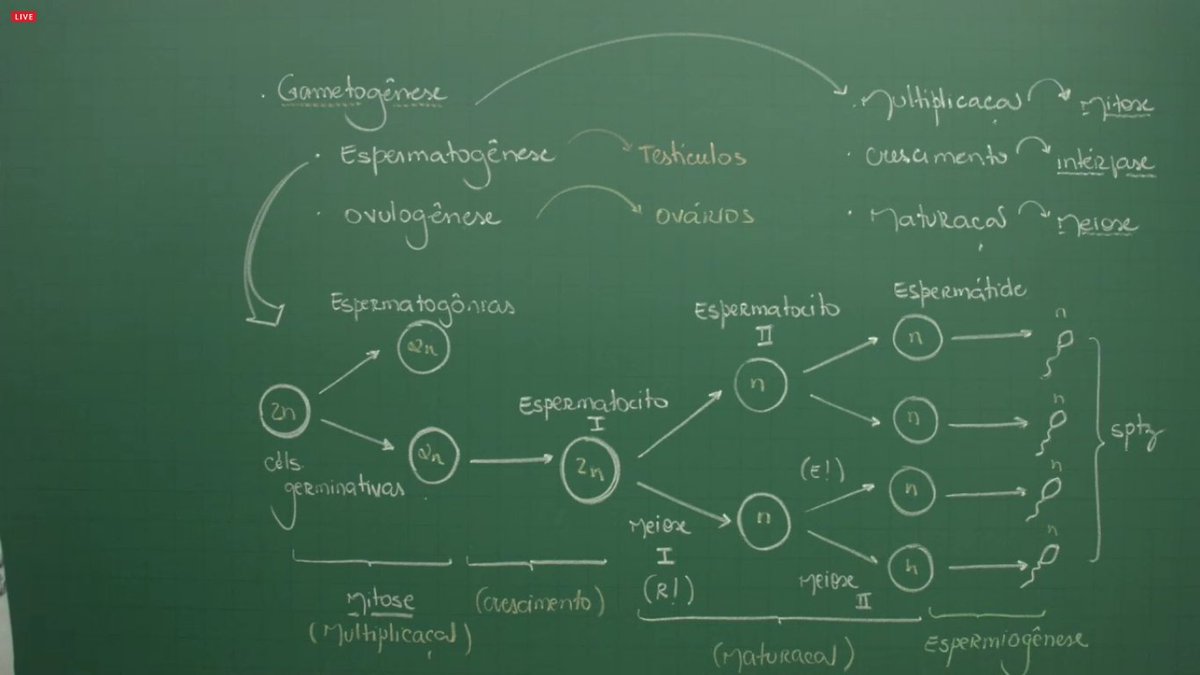 LIVE
. Gametogênese
. Espermatogênese
Testículos
. Ovulogênese
Ovários
. Multiplicação
Mitose
. Crescimento
Intérfase
. Maturação
Meiose
Espermatogônias
2n
2n
2n
céls.
germinativas
Espermatocito
I
2n
Espermatocito
II
n
n
Espermátide
n
n
n
n
n
n
n
n
sptz
Meiose
I
(R!)
(E!)
Meiose
II
Mitose
(Multiplicação)
(Crescimento)
(Maturação)
Espermiogênese